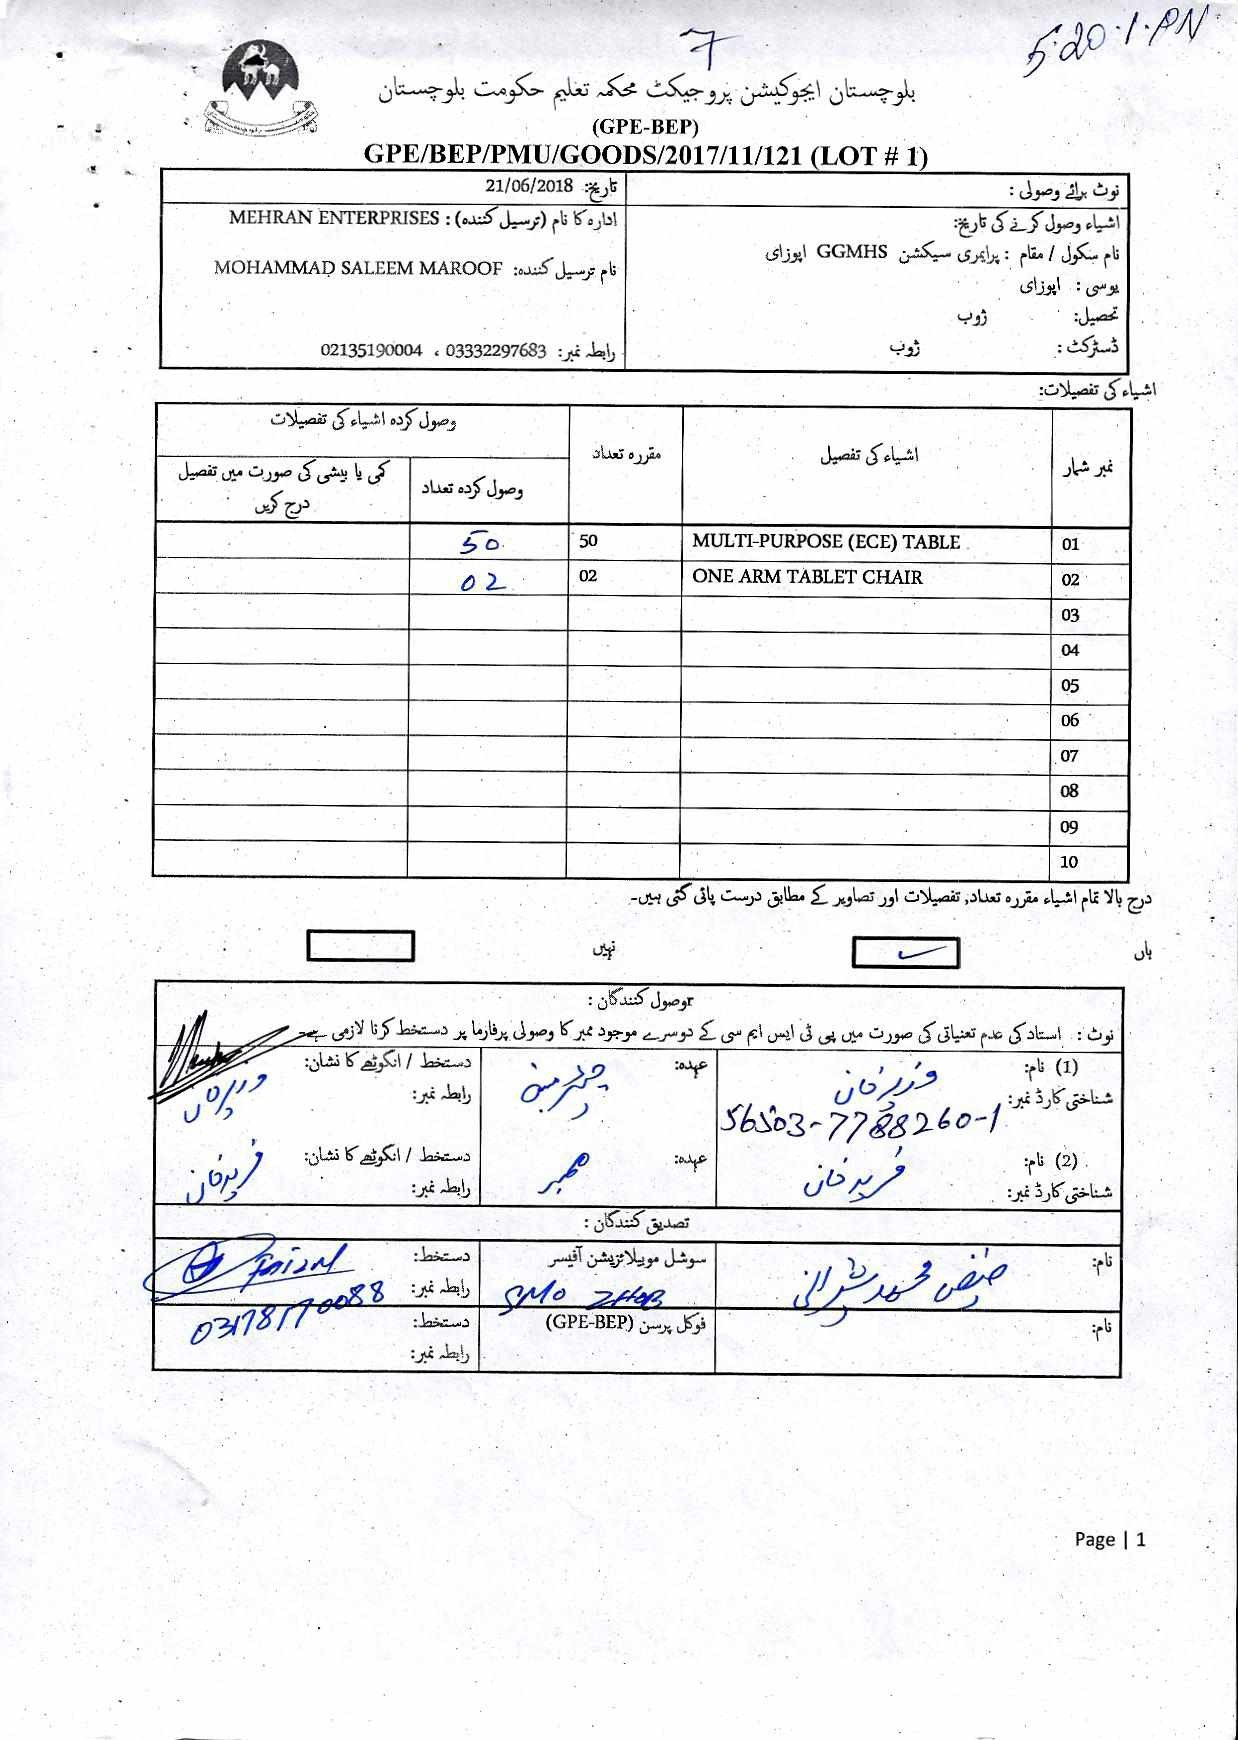 7
5:20.1.PN
بلوچستان ایجوکیشن پروجیکٹ محکمہ تعلیم حکومت بلوچستان
(GPE-BEP)
GPE/BEP/PMU/GOODS/2017/11/121 (LOT # 1)
نوٹ برائے وصولی :
تاریخ: 21/06/2018
اشیاء وصول کرنے کی تاریخ:
نام سکول / مقام : پرایمری سیکشن GGMHS اپوزای
یوسی : اپوزای
تحصیل: ژوب
ڈسٹرکٹ : ژوب
ادارہ کا نام (ترسیل کنندہ) : MEHRAN ENTERPRISES
نام ترسیل کنندہ: MOHAMMAD SALEEM MAROOF
رابطہ نمبر: 03332297683 ، 02135190004
اشیاء کی تفصیلات:
نمبر شمار
اشیاء کی تفصیل
مقررہ تعداد
وصول کردہ اشیاء کی تفصیلات
وصول کردہ تعداد
کمی یا بیشی کی صورت میں تفصیل
درج کریں
01 MULTI-PURPOSE (ECE) TABLE 50 50
02 ONE ARM TABLET CHAIR 02 02
03
04
05
06
07
08
09
10
درج بالا تمام اشیاء مقررہ تعداد, تفصیلات اور تصاویر کے مطابق درست پائی گئی ہیں۔
ہاں
نہیں
وصول کنندگان :
نوٹ : استاد کی عدم تعنیاتی کی صورت میں پی ٹی ایس ایم سی کے دوسرے موجود ممبر کا وصولی پرفارما پر دستخط کرنا لازمی ہے
(1) نام: وزیر خان
شناختی کارڈ نمبر: 56503-7788260-1
عہدہ: چیئرمین
دستخط / انگوٹھے کا نشان:
رابطہ نمبر:
(2) نام: فرید خان
شناختی کارڈ نمبر:
عہدہ: ممبر
دستخط / انگوٹھے کا نشان: فرید خان
رابطہ نمبر:
تصدیق کنندگان :
نام: محمد شیرانی
سوشل موبیلائزیشن آفیسر
SMO ZHOB
دستخط: Faizm
رابطہ نمبر:
نام:
فوکل پرسن (GPE-BEP)
دستخط:
رابطہ نمبر:
Page | 1